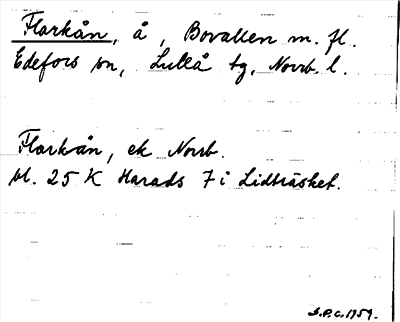 Flarkån, å, Bovallen m. fl.
Edefors sn, Luleå tg, Norrb. l.
Flarkån, ek Norrb.
bl. 25 K Harads 7 i Lidträsket.
S.P.C. 1959.